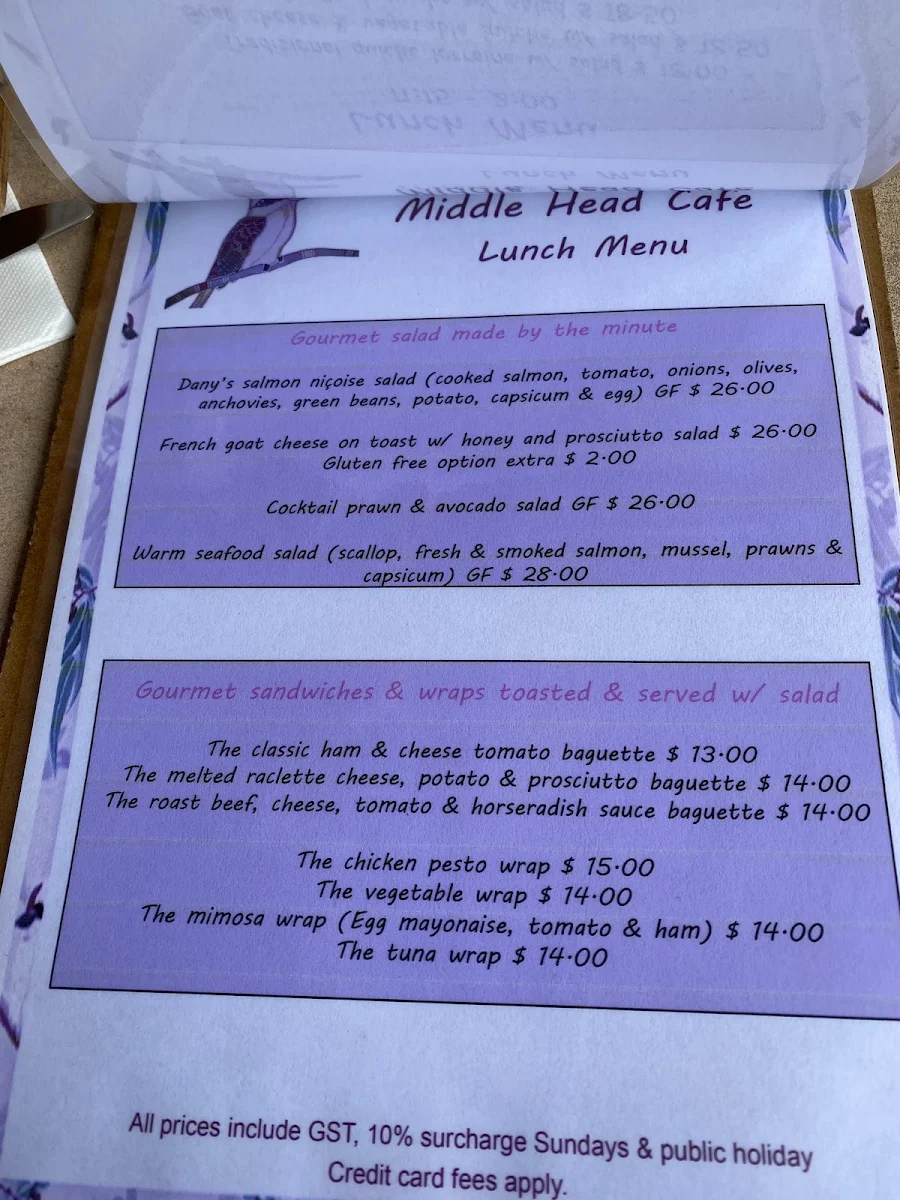 Lunch Menu
11:15 - 2:00
Middle Head Cafe
Lunch Menu
Gourmet salad made by the minute
Dany's salmon niçoise salad (cooked salmon, tomato, onions, olives,
anchovies, green beans, potato, capsicum & egg) GF $ 26.00
French goat cheese on toast w/ honey and prosciutto salad $ 26.00
Gluten free option extra $ 2.00
Cocktail prawn & avocado salad GF $ 26.00
Warm seafood salad (scallop, fresh & smoked salmon, mussel, prawns &
capsicum) GF $ 28.00
Gourmet sandwiches & wraps toasted & served w/ salad
The classic ham & cheese tomato baguette $ 13.00
The melted raclette cheese, potato & prosciutto baguette $ 14.00
The roast beef, cheese, tomato & horseradish sauce baguette $ 14.00
The chicken pesto wrap $ 15.00
The vegetable wrap $ 14.00
The mimosa wrap (Egg mayonaise, tomato & ham) $ 14.00
The tuna wrap $ 14.00
All prices include GST, 10% surcharge Sundays & public holiday
Credit card fees apply.